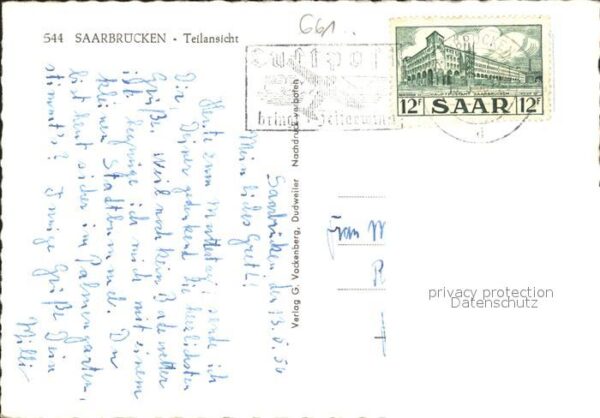 544 SAARBRÜCKEN - Teilansicht
661
Luftpost
bringt Zeitgewinn
12F SAAR 12F
d
Verlag G. Vockenberg, Dudweiler Nachdruck verboten
Saarbrücken den 13.5.56
Mein liebes Gretl!
Heute zum Muttertag sende ich
Dir, Deiner gedenkend die herzlichsten
Grüße. Weil noch kein Badewetter
ist, begnüge ich mich mit einem
kleinen Stadtbummel. Du
bist heut sicher im Palmengarten,
stimmt's? Innige Grüße Dein
Willi
Frau M
R
privacy protection
Datenschutz